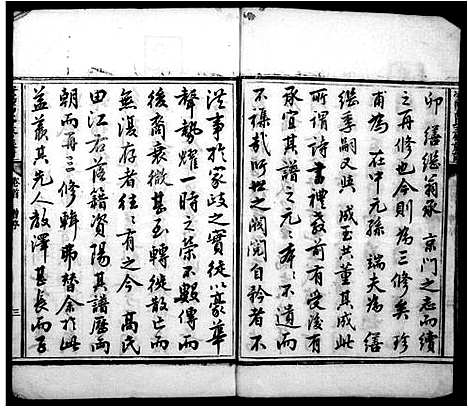 卯 繕繼翁承 京門之志而續
之再修也今則為三修矣 珍
甫為 在中元孫 端夫為 繕
繼季嗣又與 成玉共董其成此
所謂詩書禮教前有受後有
承宜其譜之元々本々不
不誣哉 世之閥閱自矜者不
從事於家 之實徒以豪華
聲勢燿一時之榮不數傳而
後裔衰微甚至轉徙散亡而
無復存者往々有之今 高氏
由江右落籍資陽其譜歷兩
朝而再三修輯弗替余於此
益羨其先人教澤甚長而
卷首
三